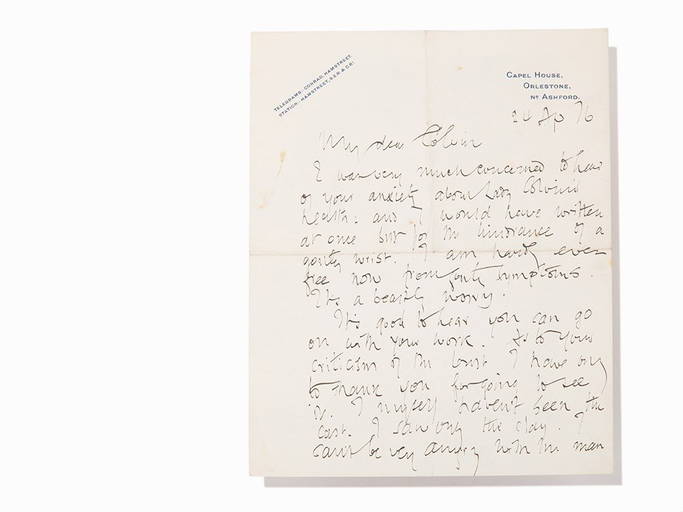 TELEGRAMS:- CONRAD, HAMSTREET.
STATION:- HAMSTREET, S.E.R. & C.R.
CAPEL HOUSE,
ORLESTONE,
NR ASHFORD.
24 Ap 16
My dear Colvin
I was very much concerned to hear
of your anxiety about Lady Colvin's
health: and I would have written
at once but for the hindrance of a
gouty wrist. I am hardly ever
free now from gouty symptoms.
It's a beastly worry.
It's good to hear you can go
on with your work. As to your
criticism of the bust I have only
to thank you for going to see
it. I myself haven't seen the
cast. I saw only the clay. I
can't be very angry with the man